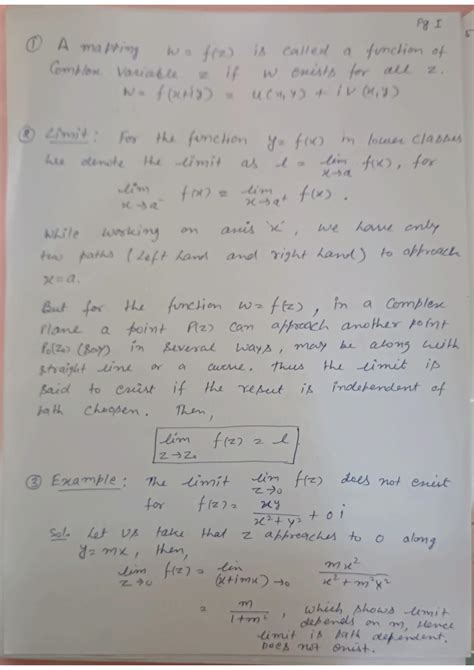 Pg I
① A mapping w = f(z) is called a function of
Complex Variable z if w exists for all z.
w = f(x+iy) = u(x,y) + i v(x,y)
② Limit : For the function y = f(x) in lower classes
we denote the limit as l = lim x→a f(x), for
lim x→a⁻ f(x) = lim x→a⁺ f(x) .
While working on axis 'x', we have only
two paths (left hand and right hand) to approach
x = a.
But for the function w = f(z) , in a complex
plane a point P(z) can approach another point
P₀(z₀) (say) in several ways, may be along with
straight line or a curve. Thus the limit is
said to exist if the result is independent of
path choosen. Then,
lim z→z₀ f(z) = l
③ Example : The limit lim z→0 f(z) does not exist
for f(z) = xy/(x²+y²) + 0i
Sol. Let us take that z approaches to 0 along
y = mx, then,
lim z→0 f(z) = lim (x+imx)→0 mx²/(x²+m²x²)
= m/(1+m²) , which shows limit
depends on m, Hence
limit is path dependent.
Does not exist.